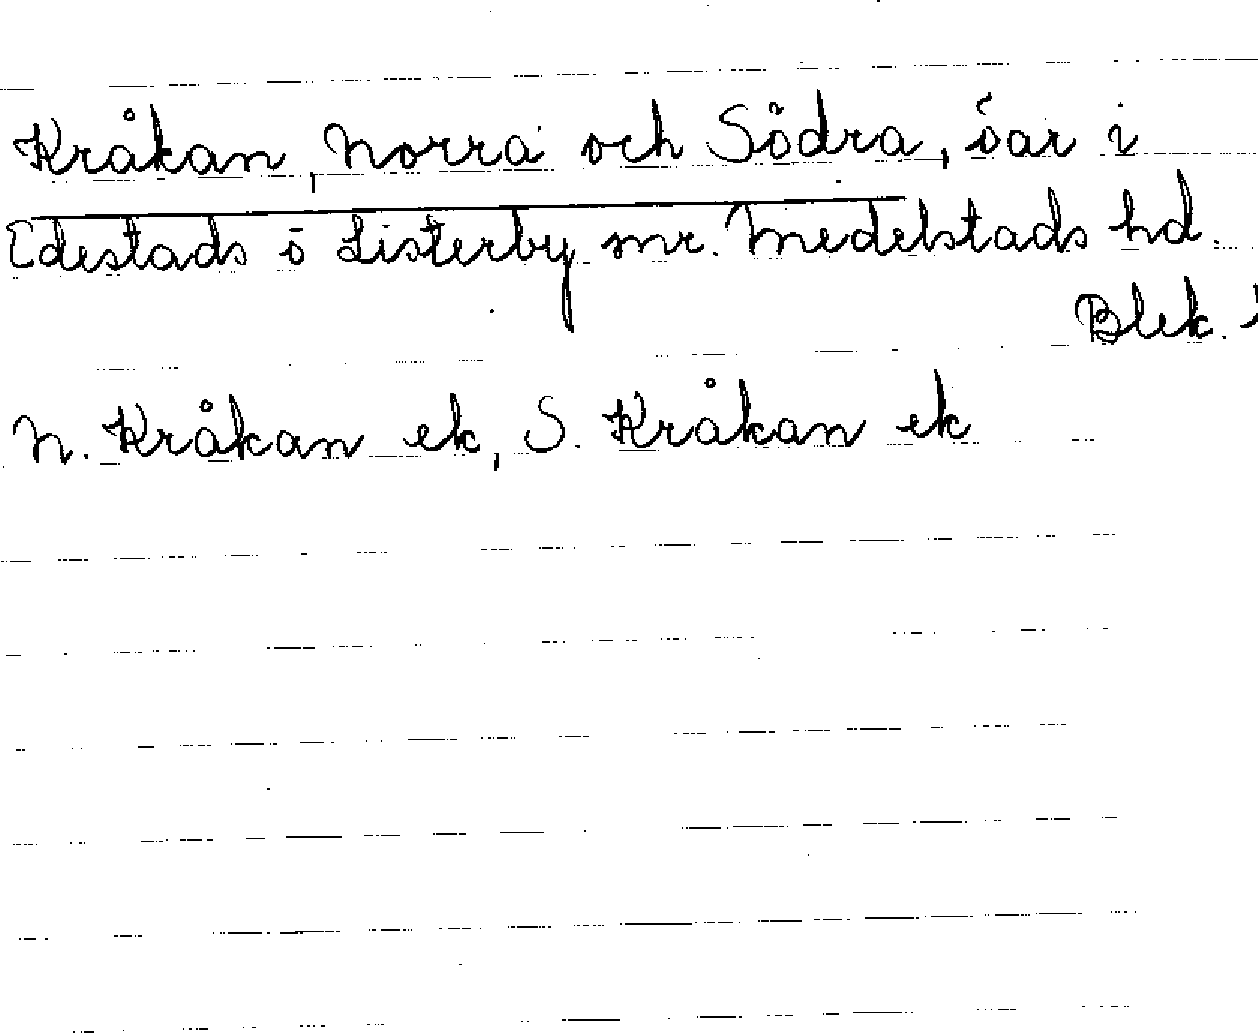 Kråkan, Norra och Södra, öar i
Edestads o Listerby snr. Medelstads hd.
Blek. l
N. Kråkan ek, S. Kråkan ek